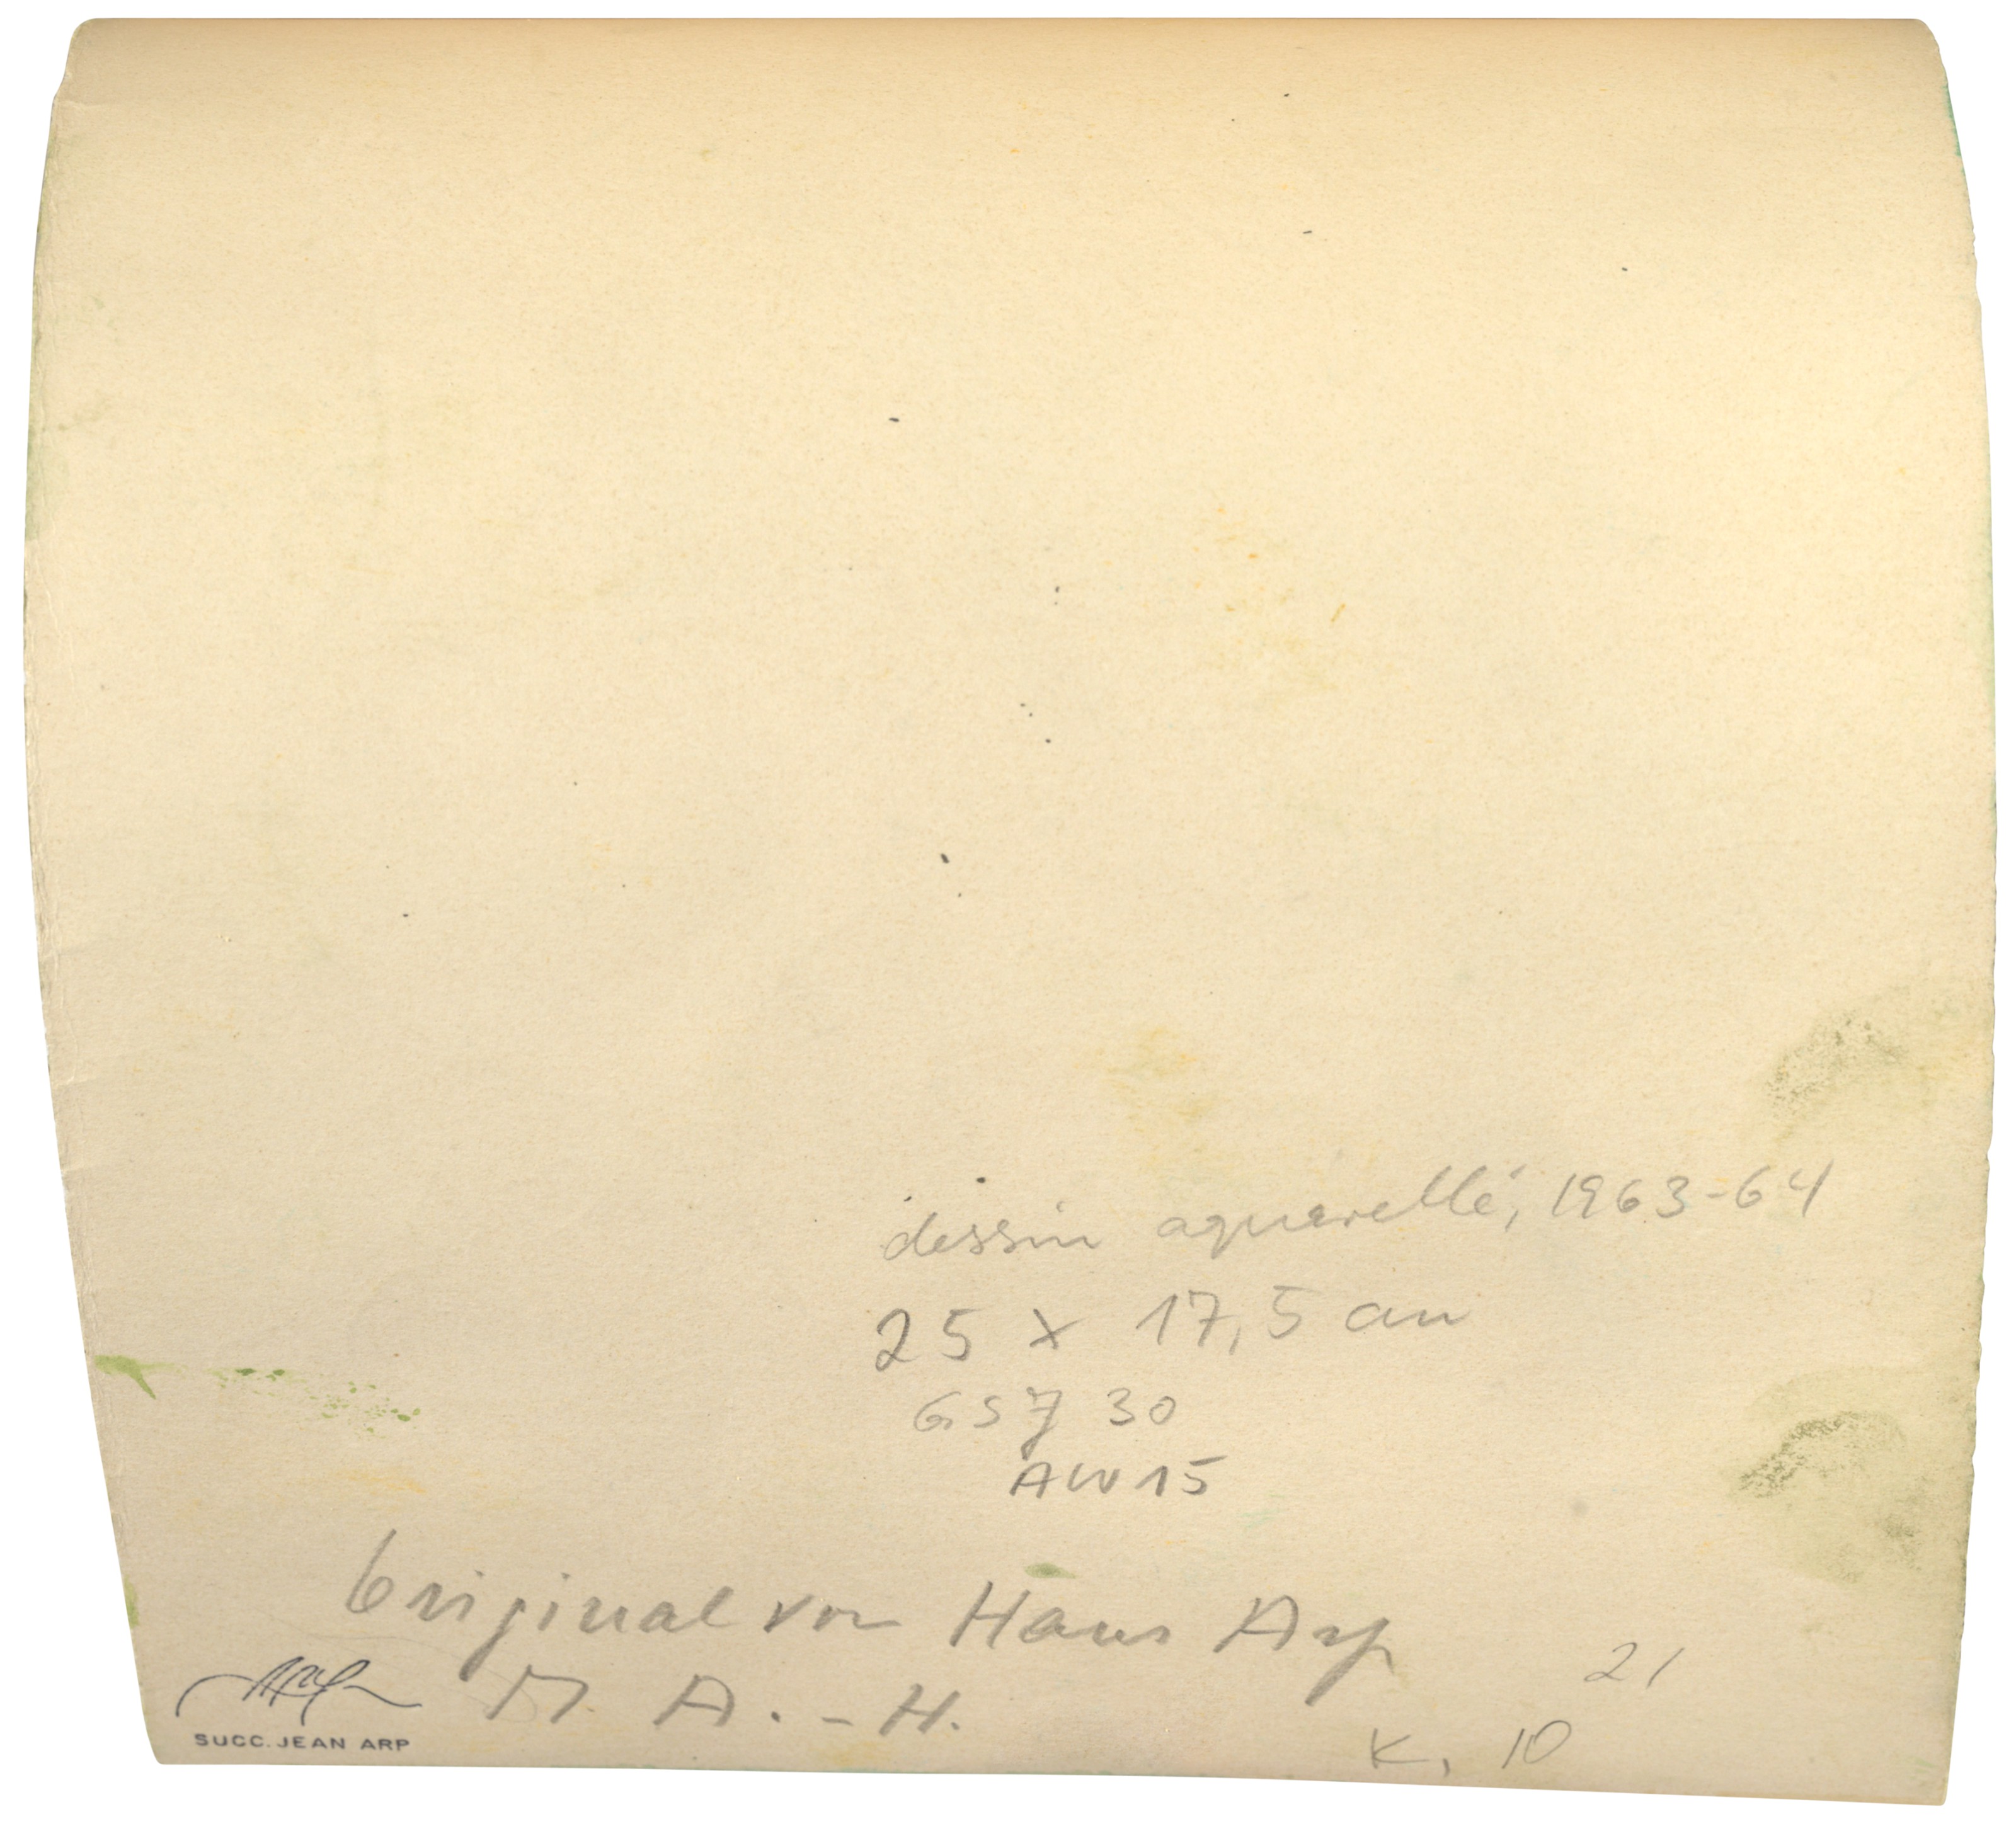 dessin aquarellé, 1963-64
25 x 17,5 cm
GSZ 30
AW 15
Original von Hans Arp
M. A. - H.
21
K. 10
ARP
SUCC. JEAN ARP